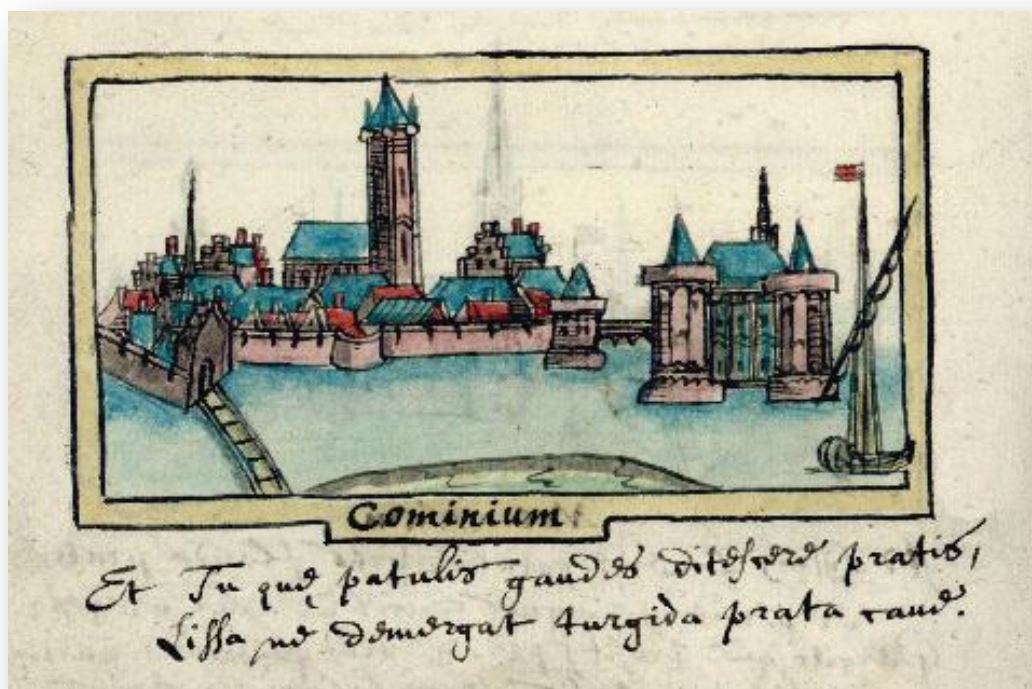 Cominium
Et Tu quę patulis gaudes ditescere pratis,
Lissa ne demergat turgida prata caue.